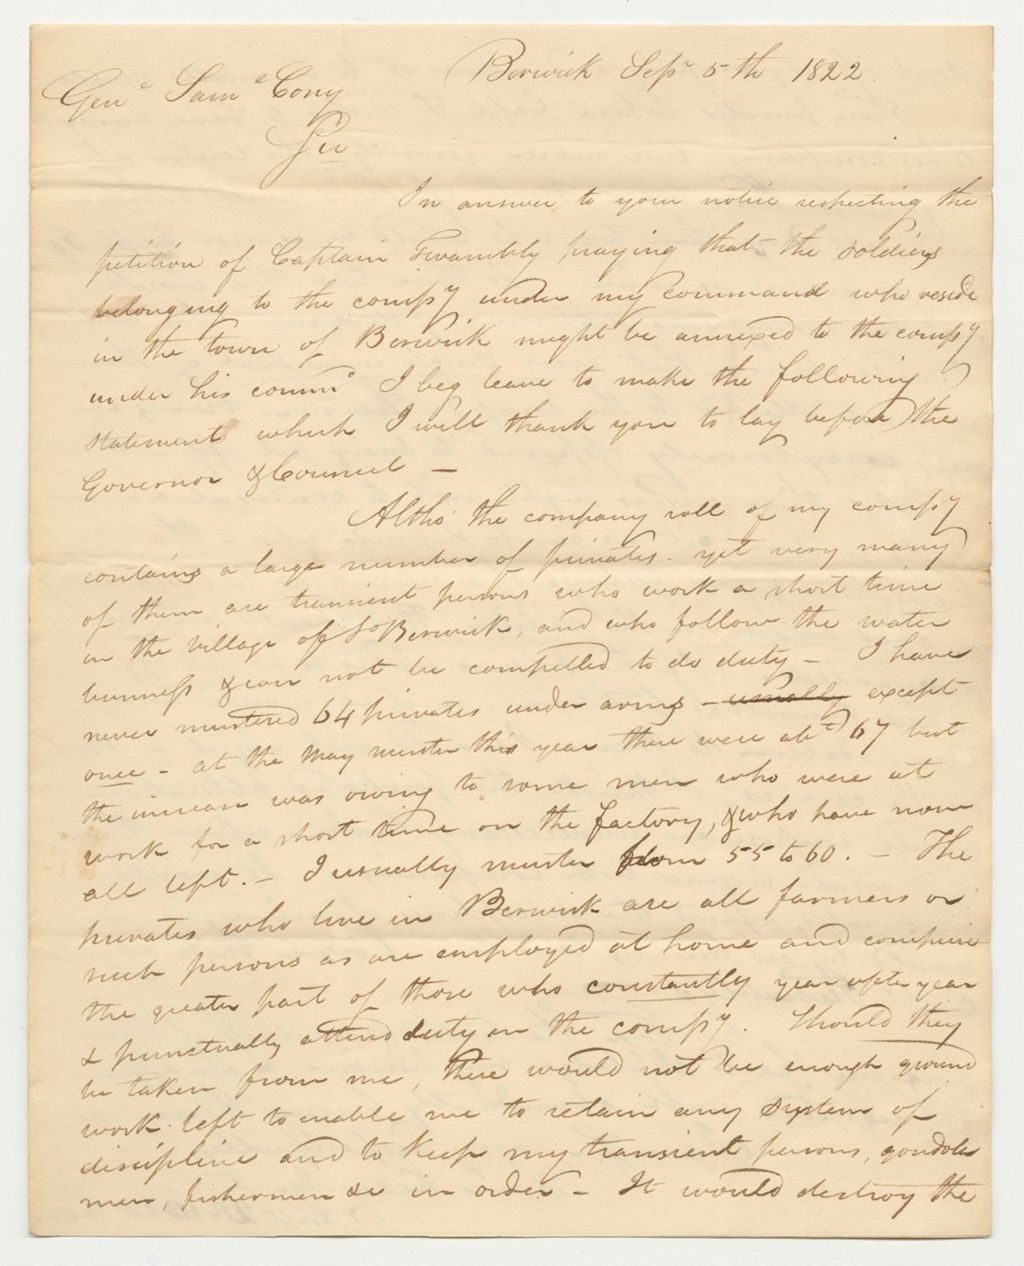 Berwick Sepr 5th 1822.
Genl Saml Cony
Sir
In answer to your notice respecting the
petition of Captain Twambly praying that the soldiers
belonging to the compy under my command who reside
in the town of Berwick might be annexed to the compy
under his commd I beg leave to make the following
statement which I will thank you to lay before the
Governor & Council —
Altho' the company roll of my compy
contains a large number of privates - yet very many
of them are transient persons who work a short time
in the village of So Berwick, and who follow the water
business & can not be compelled to do duty - I have
never mustered 64 privates under arms - usually except
once - at the May muster this year there were abt 67 but
the increase was owing to some men who were at
work for a short time on the factory, & who have now
all left. - I usually muster from 55 to 60. - The
privates who live in Berwick are all farmers or
such persons as are employed at home and comprise
the greater part of those who constantly year after year
& punctually attend duty in the compy. Should they
be taken from me, there would not be enough ground
work left to enable me to retain any system of
discipline and to keep my transient persons, gondola
men, fishermen &c in order - It would destroy the